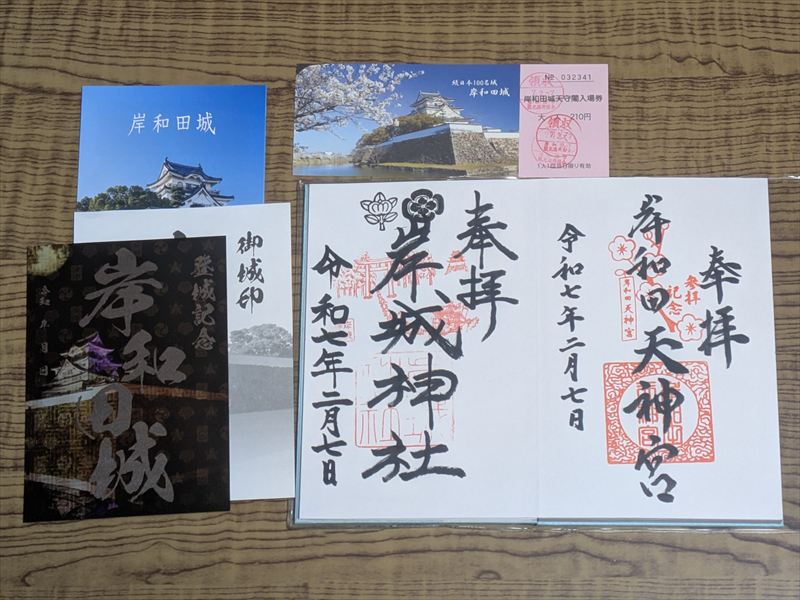 岸和田城
続日本100名城
岸和田城
No 032341
岸和田城天守閣入場券
210円
領収
領収
御城印
登城記念
岸和田城
年 月 日
奉拝
岸城神社
令和七年二月七日
奉拝
参拝
記念
岸和田天神宮
岸和田天神宮
令和七年二月七日